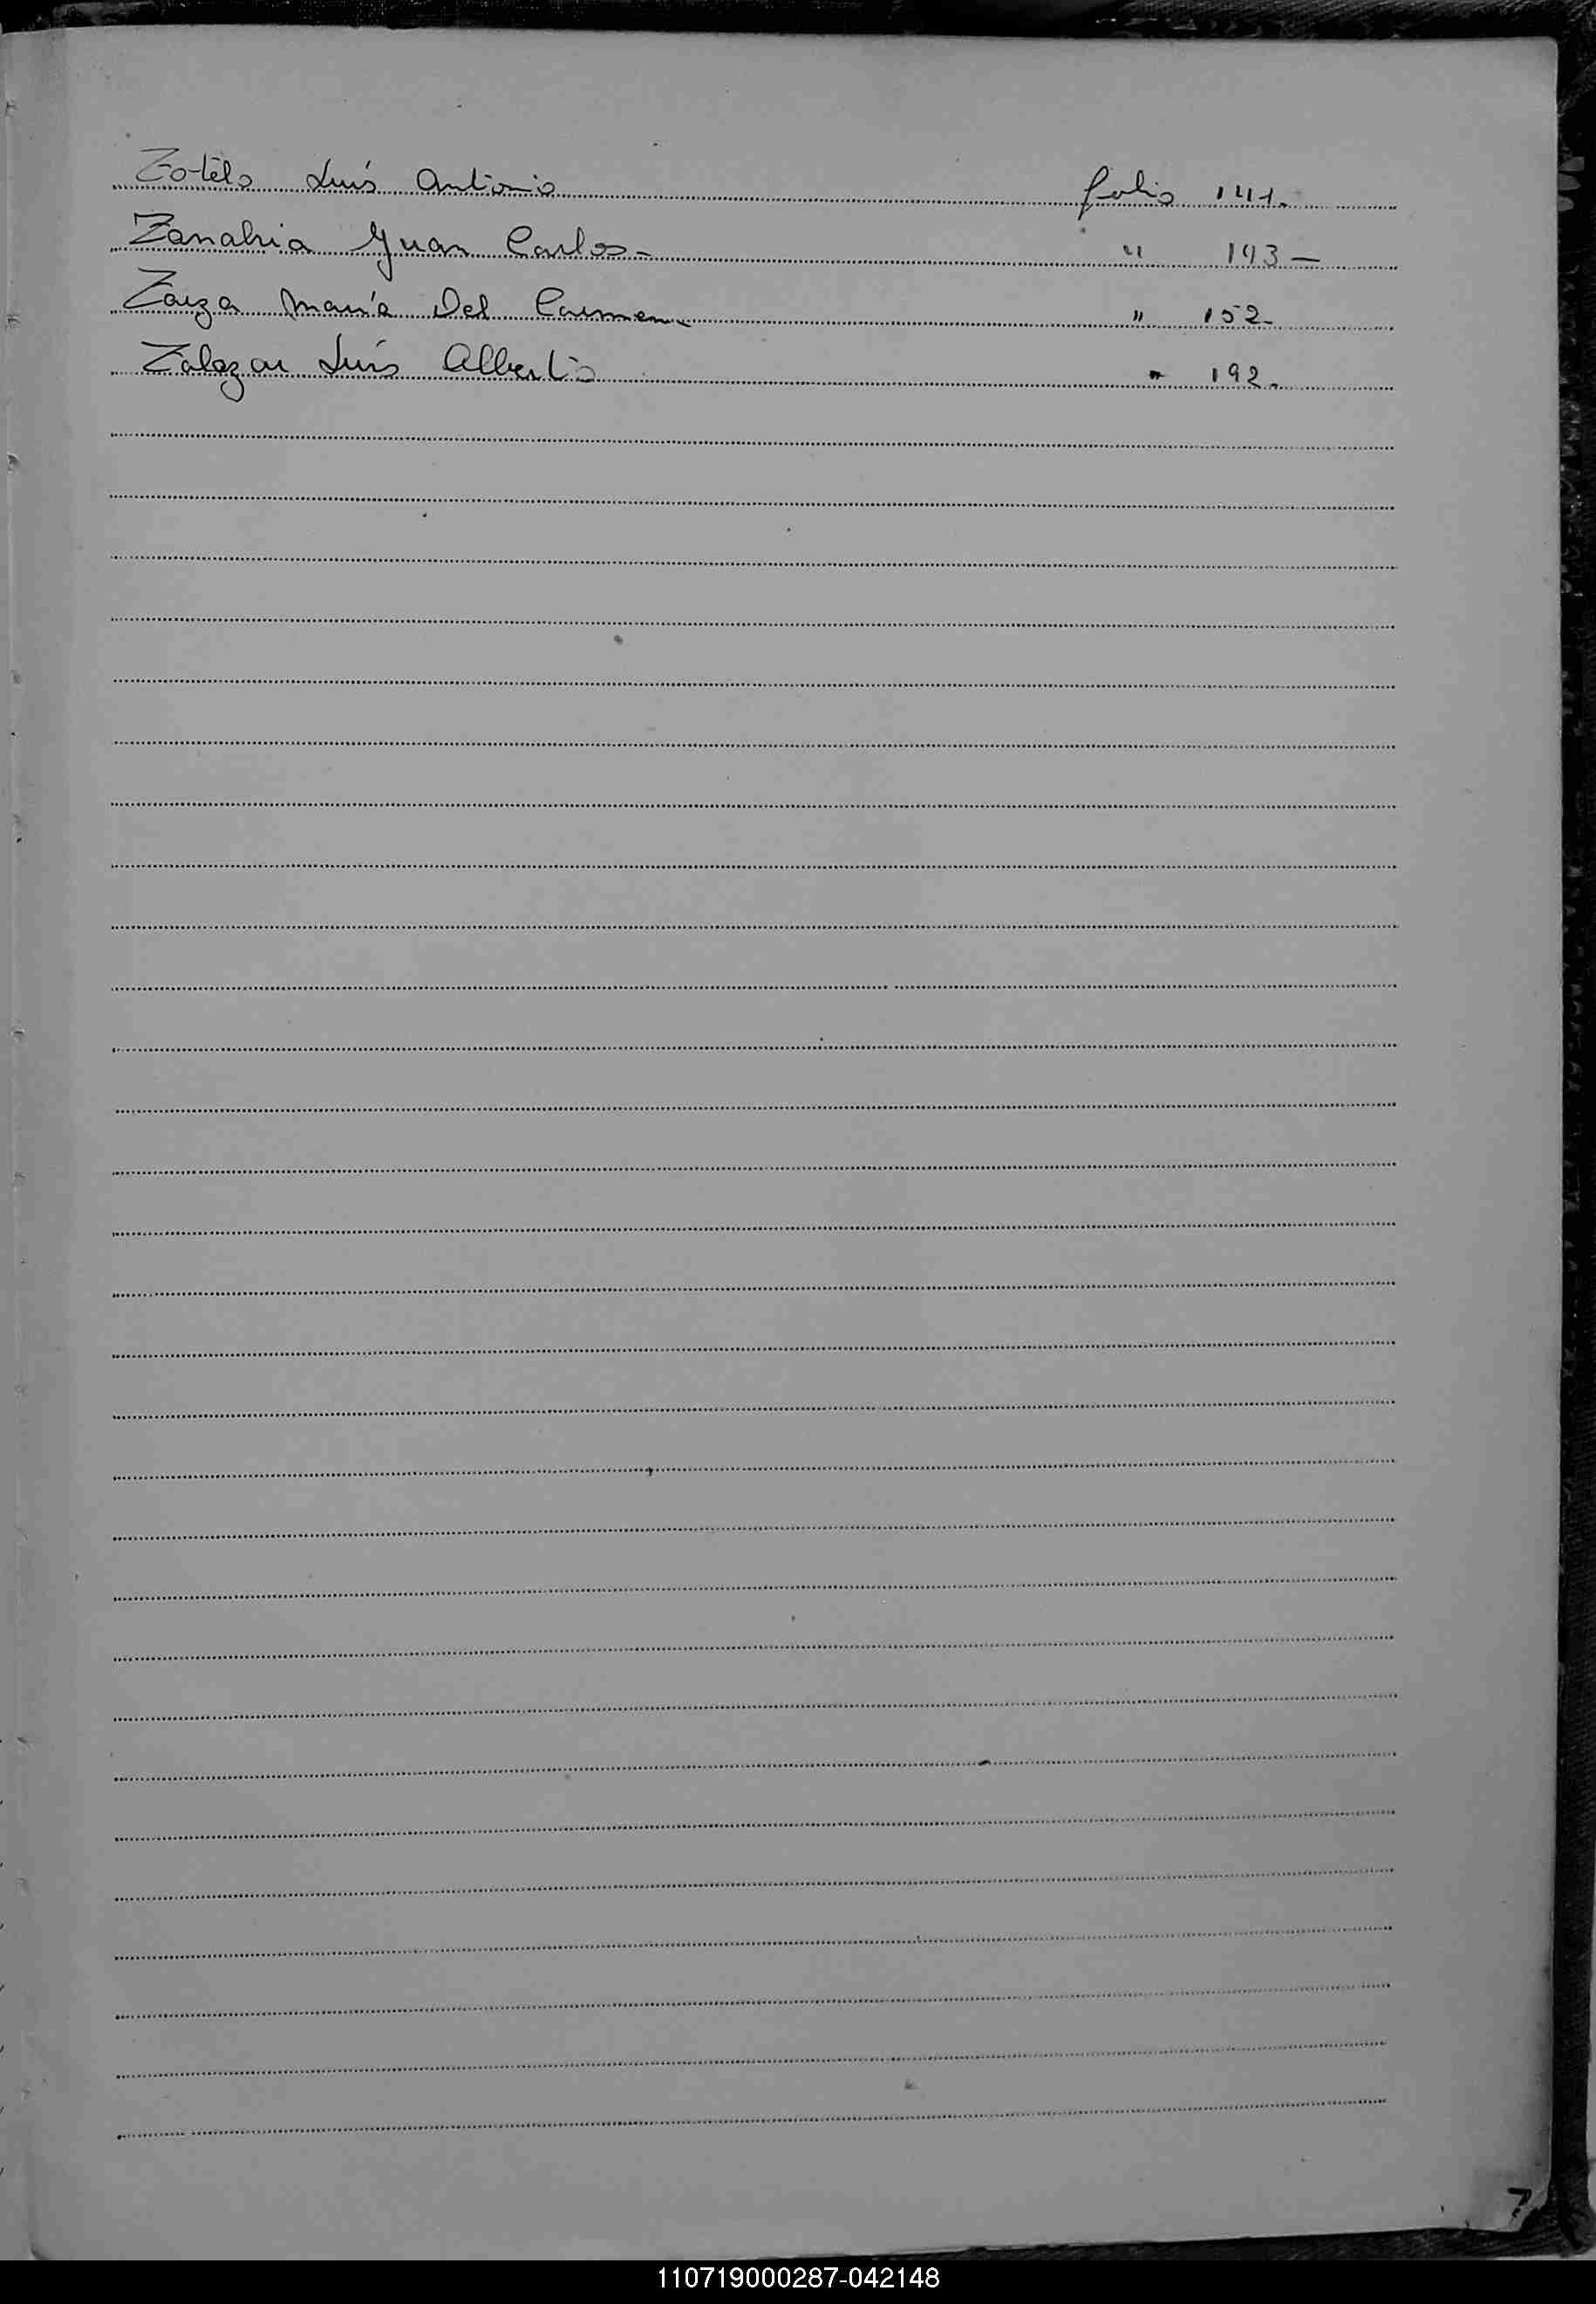 Zotelo Luís Antonio folio 141.
Zanabria Juan Carlos - " 143 —
Zarza María Del Carmen - " 152 -
Zalazar Luís Alberto " 192.
7
110719000287-042148